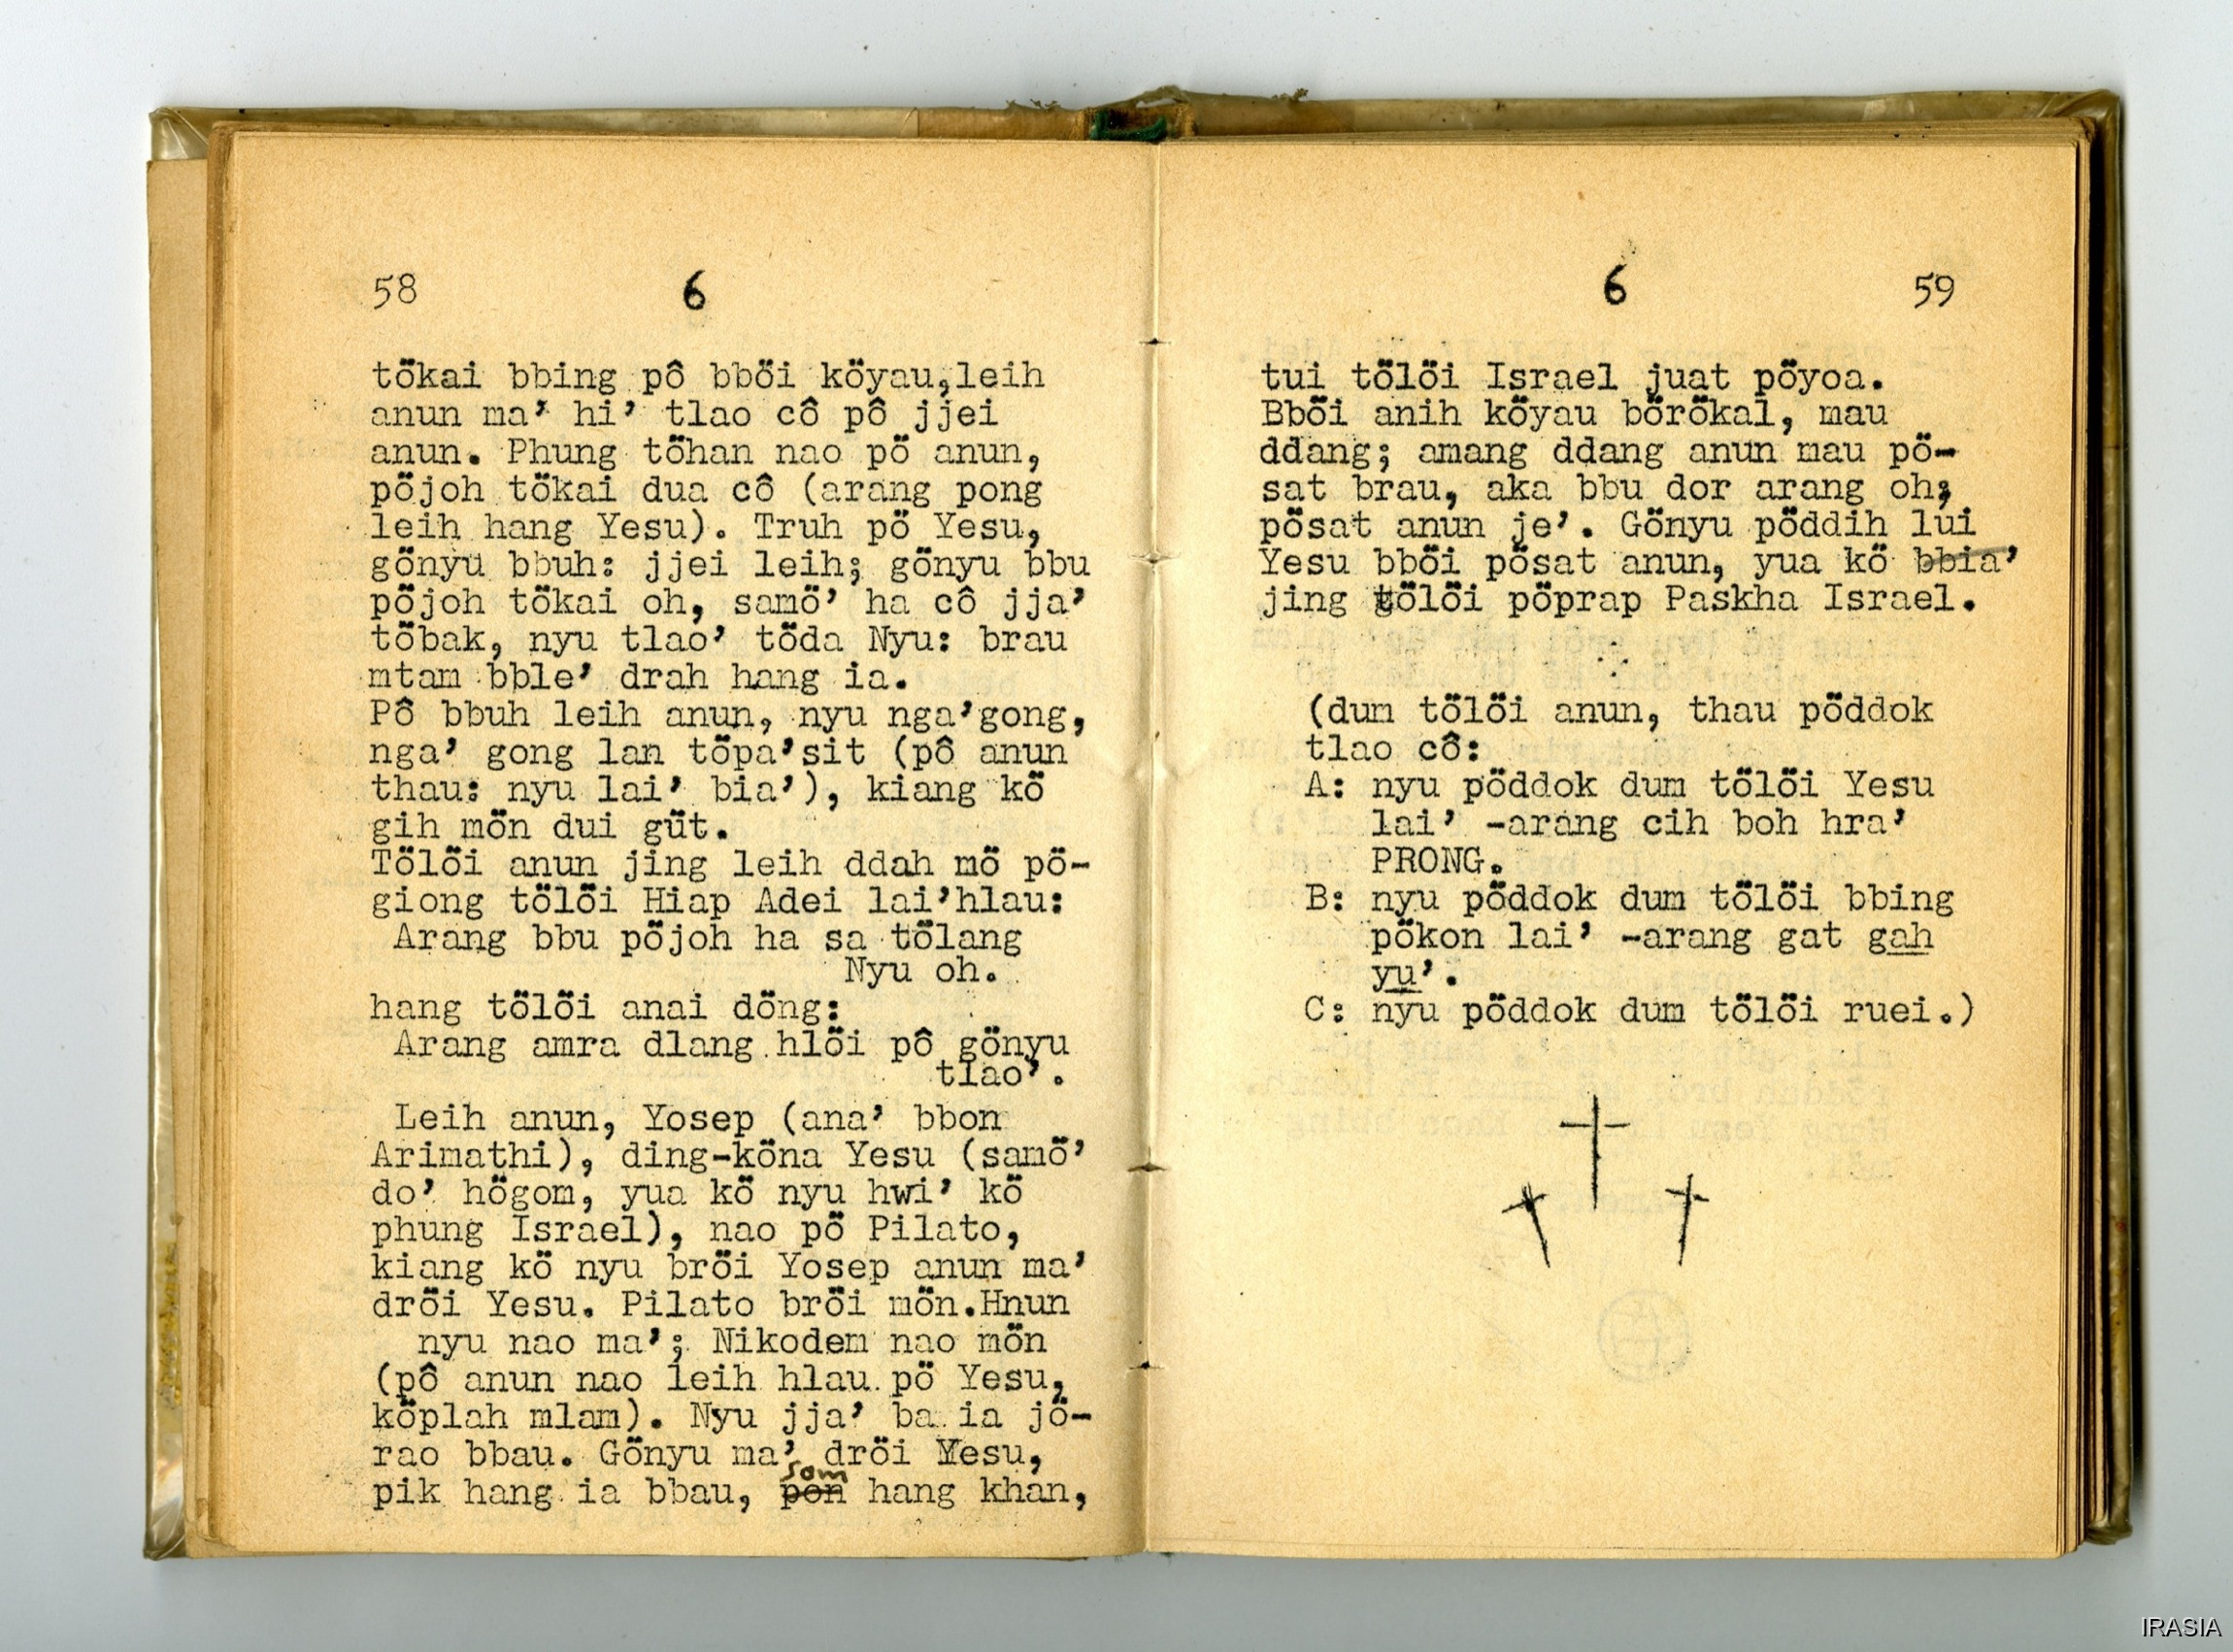 58 6
tökai bbing pô bböi köyau,leih
anun ma’ hi’ tlao cô pô jjei
anun. Phung töhan nao pö anun,
pöjoh tökai dua cô (arang pong
leih hang Yesu). Truh pö Yesu,
gönyu bbuh: jjei leih; gönyu bbu
pöjoh tökai oh, samö’ ha cô jja’
töbak, nyu tlao’ töda Nyu: brau
mtam bble’ drah hang ia.
Pô bbuh leih anun, nyu nga’gong,
nga’ gong lan töpa’sit (pô anun
thau: nyu lai’ bia’), kiang kö
gih mön dui güt.
Tölöi anun jing leih ddah mö pö-
giong tölöi Hiap Adei lai’hlau:
Arang bbu pöjoh ha sa tölang
Nyu oh.
hang tölöi anai döng:
Arang amra dlang hlöi pô gönyu
tlao’.
Leih anun, Yosep (ana’ bbon
Arimathi), ding-köna Yesu (samö’
do’ högom, yua kö nyu hwi’ kö
phung Israel), nao pö Pilato,
kiang kö nyu bröi Yosep anun ma’
dröi Yesu. Pilato bröi mön.Hnun
nyu nao ma’; Nikodem nao mön
(pô anun nao leih hlau pö Yesu,
köplah mlam). Nyu jja’ ba ia jö-
rao bbau. Gönyu ma’ dröi Yesu,
som
pik hang ia bbau, pon hang khan,
6 59
tui tölöi Israel juat pöyoa.
Bböi anih köyau börökal, mau
ddang; amang ddang anun mau pö-
sat brau, aka bbu dor arang oh;
pösat anun je’. Gönyu pöddih lui
Yesu bböi pösat anun, yua kö bbia’
jing tölöi pöprap Paskha Israel.
(dum tölöi anun, thau pöddok
tlao cô:
A: nyu pöddok dum tölöi Yesu
lai’ -arang cih boh hra’
PRONG.
B: nyu pöddok dum tölöi bbing
pökon lai’ -arang gat gah
yu’.
C: nyu pöddok dum tölöi ruei.)
IRASIA